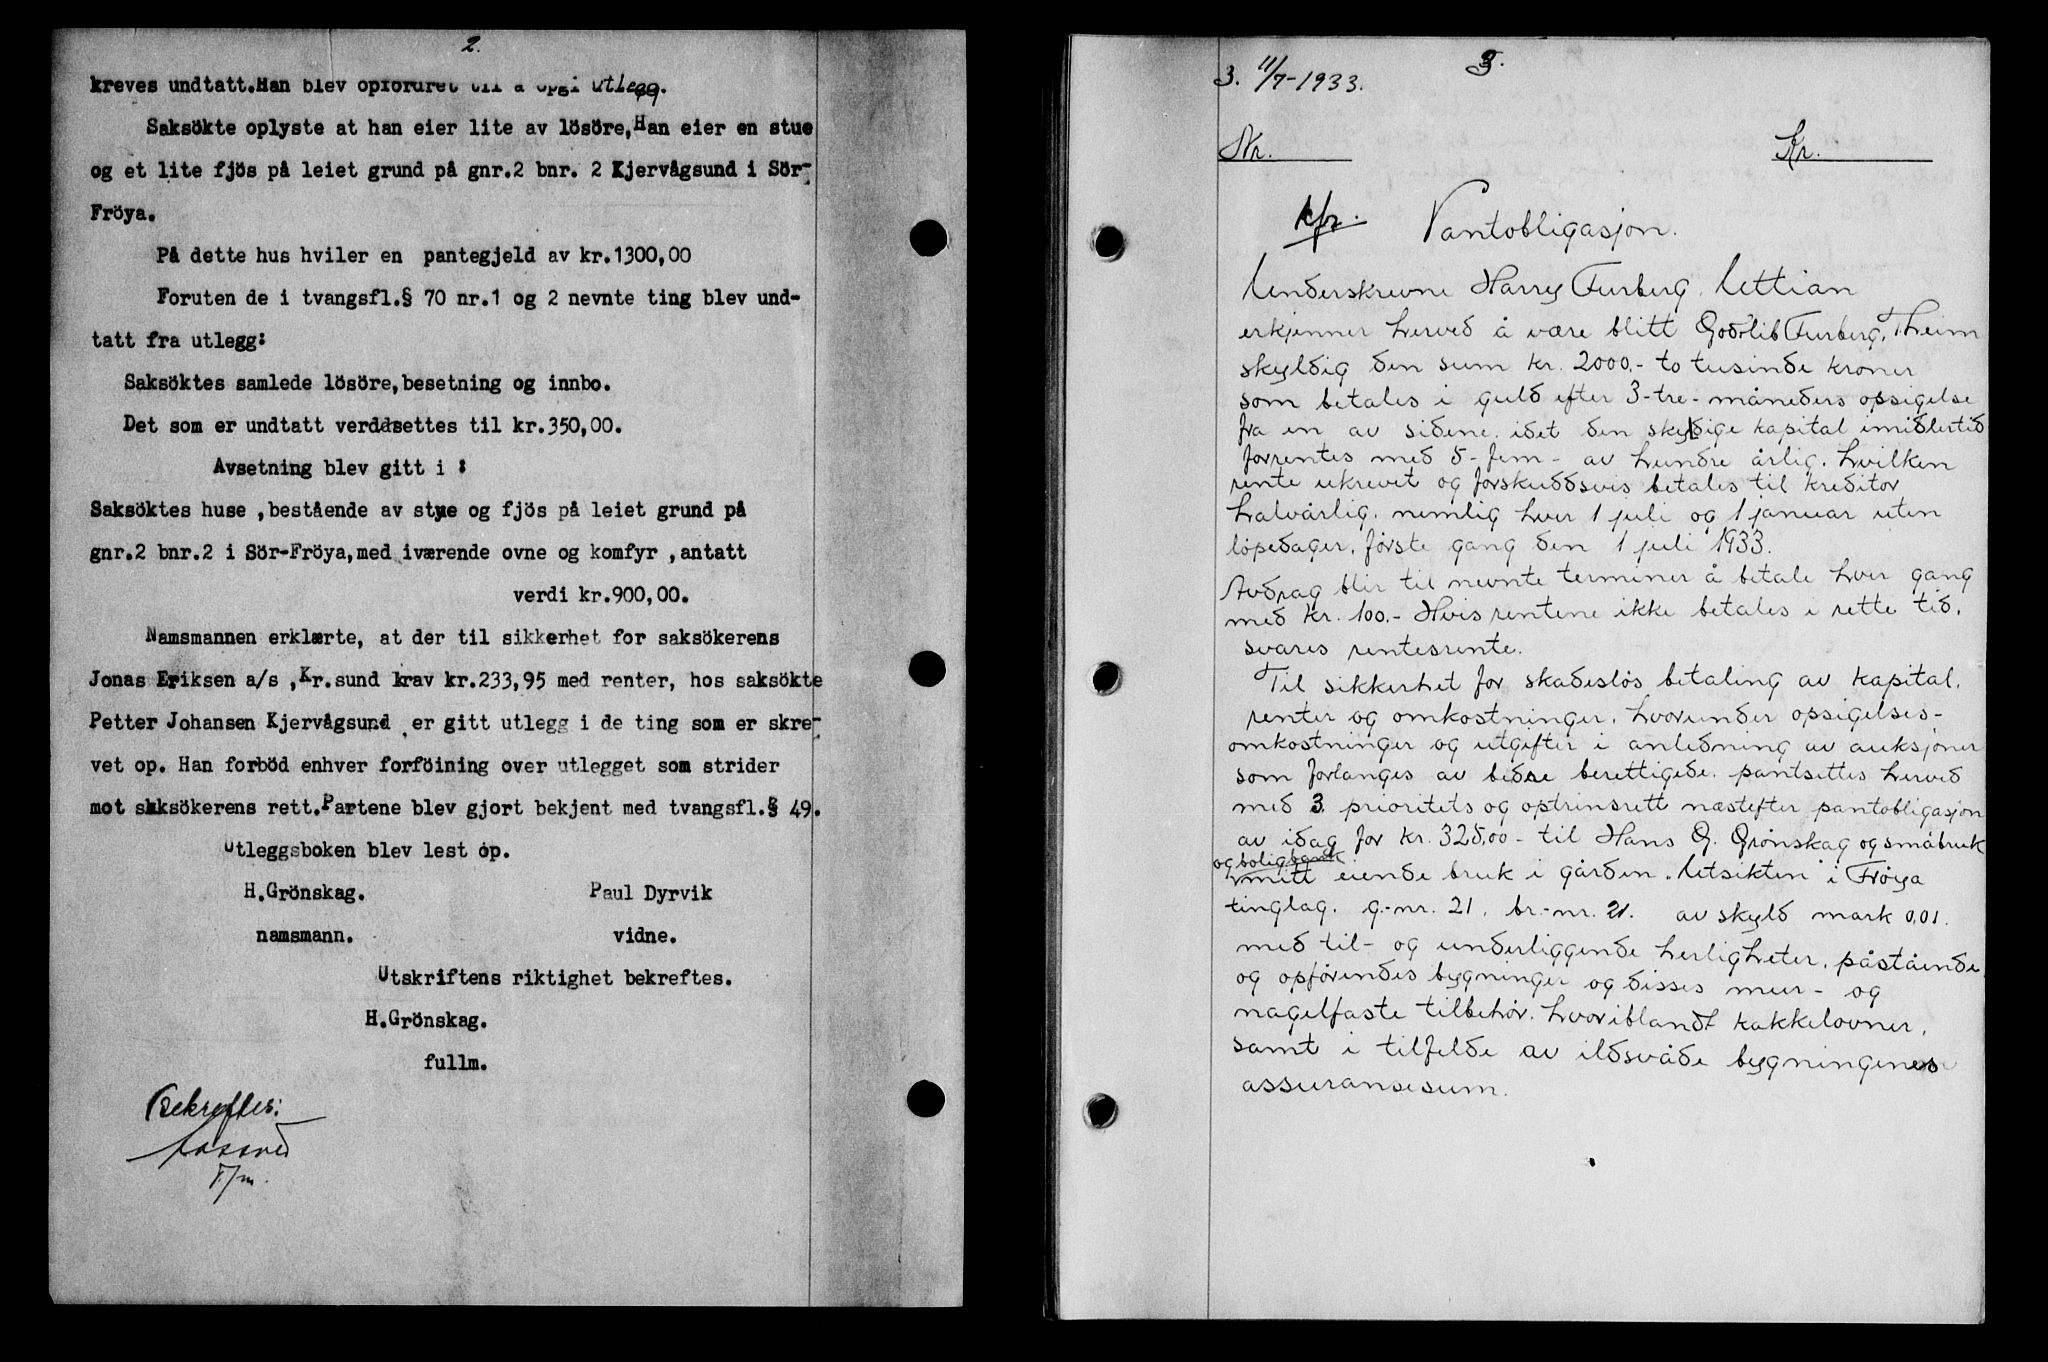 2.
kreves undtatt.Han blev opfordret til å opgi utlegg.
Saksökte oplyste at han eier lite av lösöre,Han eier en stue
og et lite fjös på leiet grund på gnr.2 bnr. 2 Kjervågsund i Sör-
Fröya.
På dette hus hviler en pantegjeld av kr.1300,00
Foruten de i tvangsfl.§ 70 nr.1 og 2 nevnte ting blev und-
tatt fra utlegg:
Saksöktes samlede lösöre,besetning og innbo.
Det som er undtatt verdsettes til kr.350,00.
Avsetning blev gitt i :
Saksöktes huse ,bestående av stue og fjös på leiet grund på
gnr.2 bnr.2 i Sör-Fröya,med iværende ovne og komfyr ,antatt
verdi kr.900,00.
Namsmannen erklærte, at der til sikkerhet for saksökerens
Jonas Eriksen a/s ,Kr.sund krav kr.233,95 med renter, hos saksökte
Petter Johansen Kjervågsund er gitt utlegg i de ting som er skre-
vet op. Han forböd enhver forföining over utlegget som strider
mot saksökerens rett.Partene blev gjort bekjent med tvangsfl.§ 49.
Utleggsboken blev lest op.
H.Grönskag. Paul Dyrvik
namsmann. vidne.
Utskriftens riktighet bekreftes.
H.Grönskag.
fullm.
Bekreftes:
F/m.
3.
3. 11/7-1933.
Nr. Kr.
Pantobligasjon.
Underskrevne Harry Furberg, Uttian
erkjenner herved å være blitt Godtlib Furberg, Theim
skyldig den sum kr. 2000.- to tusinde kroner
som betales i guld efter 3-tre-måneders opsigelse
fra en av sidene, idet den skyldige kapital imidlertid
forrentes med 5-fem- av hundre årlig, hvilken
rente ukrevet og forskuddsvis betales til kreditor
halvårlig, nemlig hver 1 juli og 1 januar uten
løpedager, første gang den 1 juli 1933.
Avdrag blir til nevnte terminer å betale hver gang
med kr. 100.- Hvis rentene ikke betales i rette tid,
svares rentesrente.
Til sikkerhet for skadesløs betaling av kapital,
renter og omkostninger, hvorunder opsigelses-
omkostninger og utgifter i anledning av auksjoner
som forlanges av bedre berettigede, pantsettes herved
med 3 prioritets og optrinsrett næstefter pantobligasjon
av idag for kr. 325,00- til Hans G. Grønskag og småbruk
og boligbank
mitt eiende bruk i gården. Utsikten i Frøya
tinglag, g.-nr. 21, br.-nr. 21. av skyld mark 0,01.
med til- og underliggende herligheter, påstående
og opførendes bygninger og disses mur- og
nagelfaste tilbehør, hvoriblandt kakkelovner,
samt i tilfelde av ildsvåde bygningenes
assuransesum.